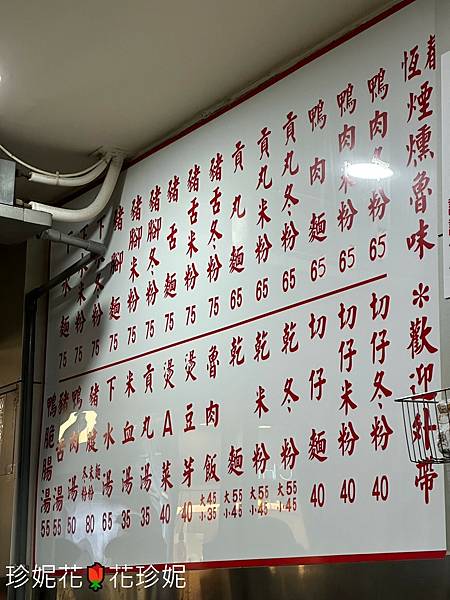 恆春煙燻魯味＊歡迎外帶
鴨肉冬粉 65
鴨肉米粉 65
鴨肉麵 65
貢丸冬粉 65
貢丸米粉 65
貢丸麵 65
豬舌冬粉 75
豬舌米粉 75
豬舌麵 75
豬腳冬粉 75
豬腳米粉 75
豬腳麵 75
冬粉 75
米粉 75
水麵 75
切仔冬粉 40
切仔米粉 40
切仔麵 40
乾冬粉 大55 小45
乾米粉 大55 小45
乾麵 大55 小45
魯肉飯 大45 小35
燙豆芽 40
燙A菜 40
貢丸湯 35
米血湯 35
下水湯 65
豬 麵 米粉 冬粉 80
鴨肉湯 50
豬舌湯 55
鴨脆腸湯 55
珍妮花🌹花珍妮